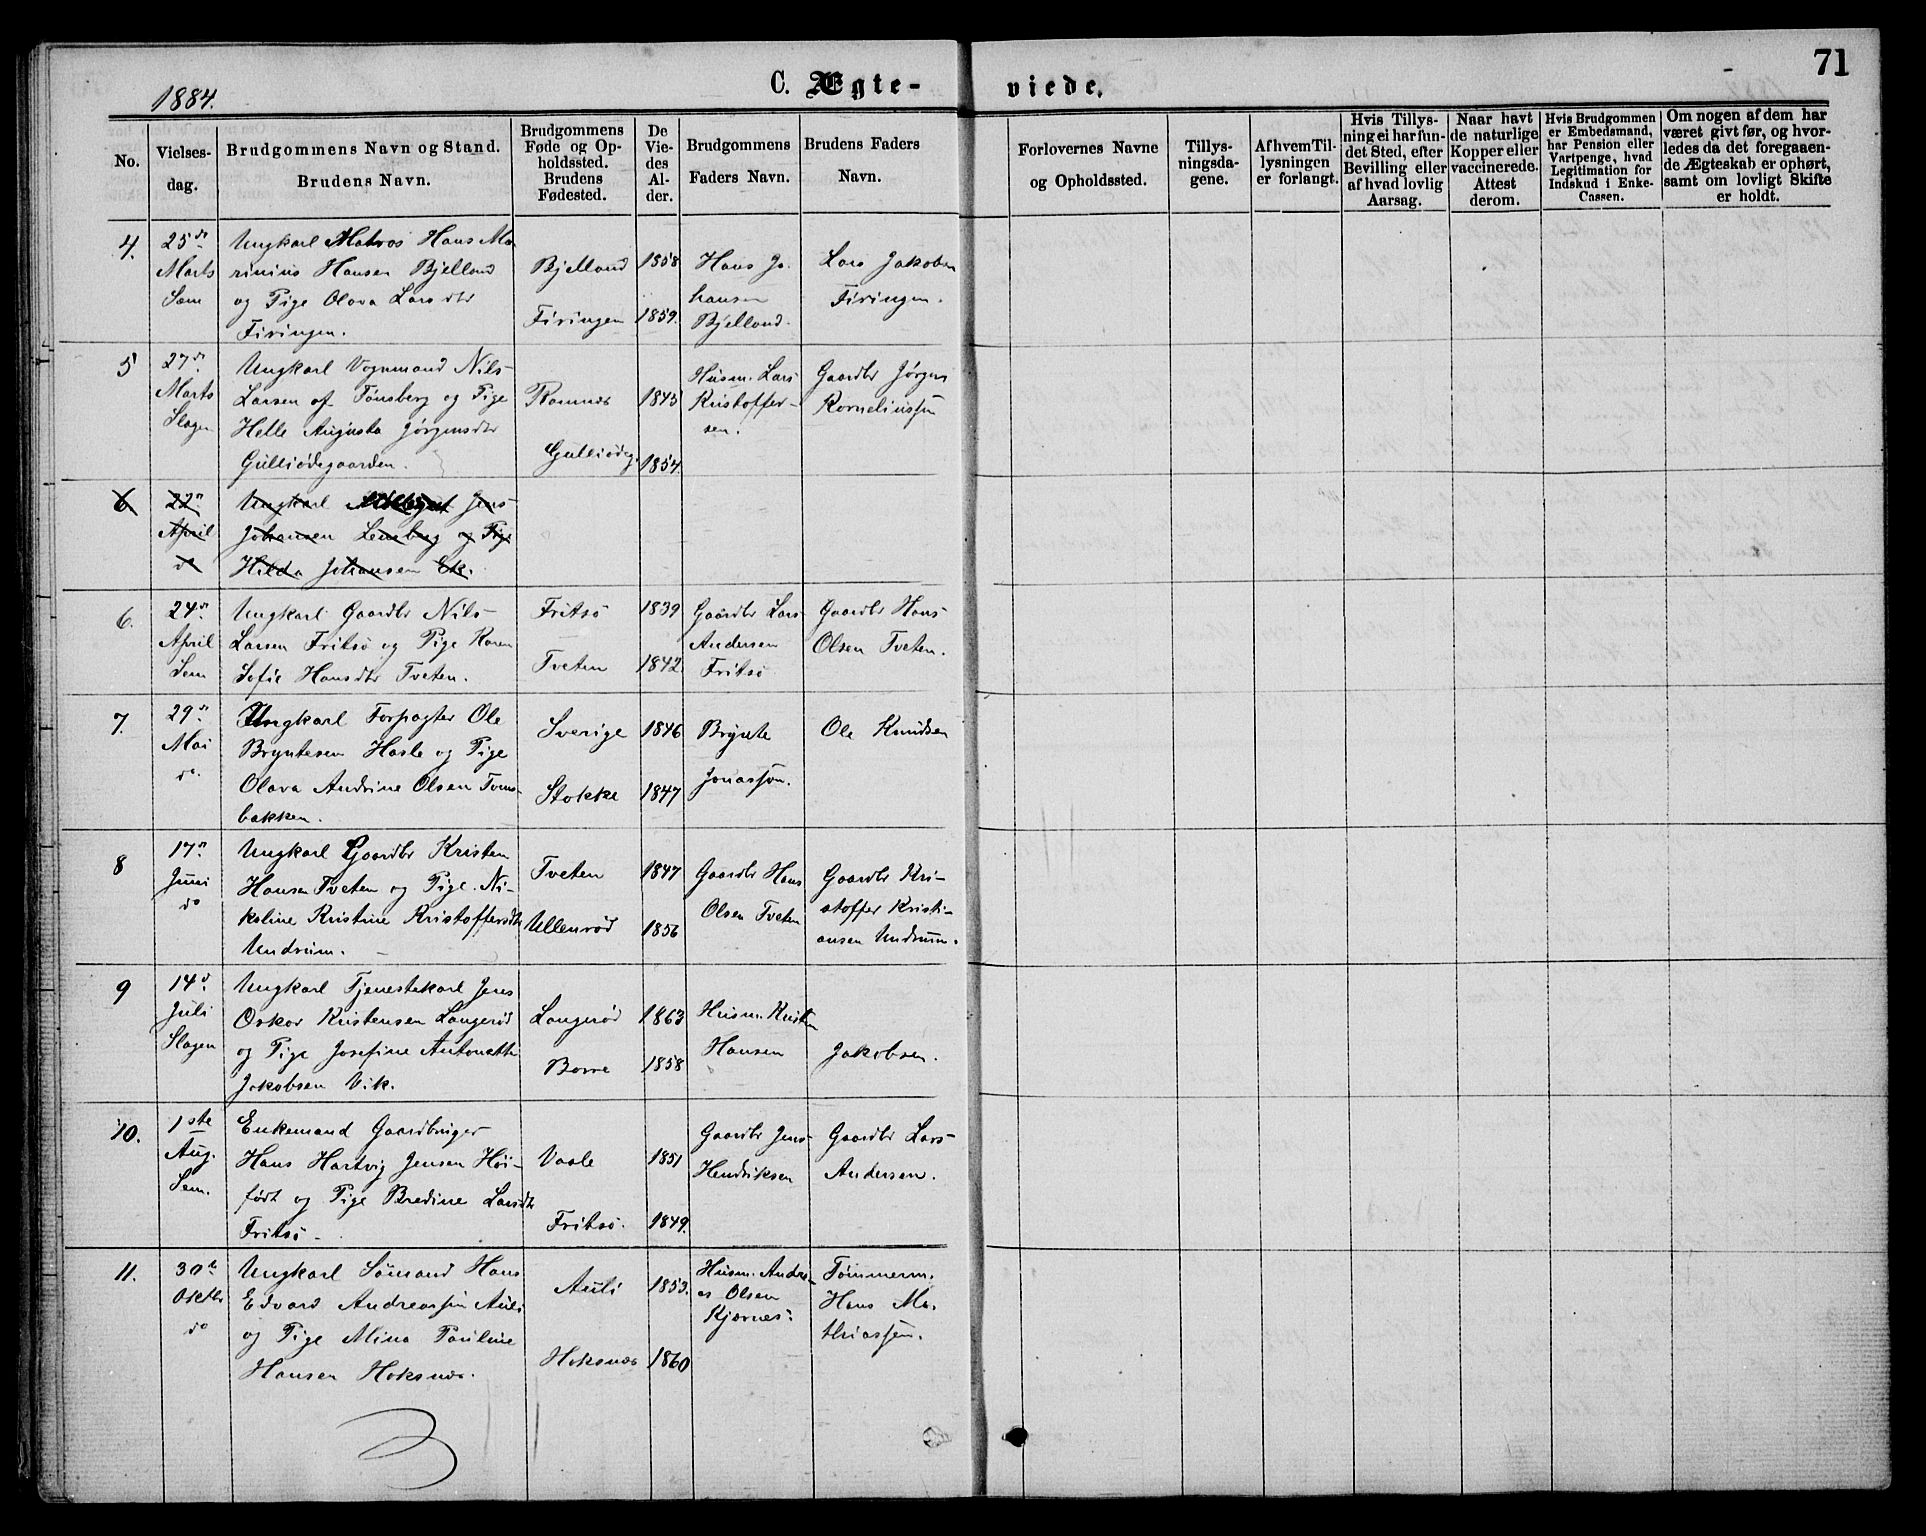 71
1884.
C. Ægte- viede.
No.
Vielses-
dag.
Brudgommens Navn og Stand.
Brudens Navn.
Brudgommens
Føde og Op-
holdssted.
Brudens
Fødested.
De
Vie-
des
Al-
der.
Brudgommens
Faders Navn.
Brudens Faders
Navn.
Forlovernes Navne
og Opholdssted.
Tillys-
ningsda-
gene.
Af hvem Til-
lysningen
er forlangt.
Hvis Tillys-
ning ei har fun-
det Sted, efter
Bevilling eller
af hvad lovlig
Aarsag.
Naar havt
de naturlige
Kopper eller
vaccinerede.
Attest
derom.
Hvis Brudgommen
er Embedsmand,
har Pension eller
Vartpenge, hvad
Legitimation for
Indskud i Enke-
Cassen.
Om nogen af dem har
været givt før, og hvor-
ledes da det foregaaen-
de Ægteskab er ophørt,
samt om lovligt Skifte
er holdt.
4.
25de
Marts
Sem
Ungkarl Matros Hans Ma-
rinius Hansen Bjelland
og Pige Olava Larsdtr
Firingen.
Bjelland
Firingen
1858
1859.
Hans Jo-
hansen
Bjelland.
Lars Jakobsen
Firingen.
5
27de
Marts
Slagen
Ungkarl Vognmand Nils
Larsen af Tønsberg og Pige
Helle Augusta Jørgensdtr
Gulliødegaarden.
Ramnæs
Gulliødeg.
1843
1854.
Husm. Lars
Kristoffer-
sen.
Gaardbr Jørgen
Korneliussen
6
22n
April
do
Ungkarl Jens
Johansen Lensberg og Pige
Hilda Johansen Ek.
6.
24de
April
Sem
Ungkarl Gaardbr Nils
Larsen Fritsø og Pige Karen
Sofie Hansdtr Tveten.
Fritsø
Tveten
1839
1842
Gaardbr Lars
Andersen
Fritsø
Gaardbr Hans
Olsen Tveten.
7.
29de
Mai
do.
Ungkarl Forpagter Ole
Bryntesen Hasle og Pige
Olava Andrine Olsen Tvens-
bakken.
Sverige
Stokke
1846
1847
Brynte
Jonassøn.
Ole Knudsen
8
17n
Juni
do
Ungkarl Gaardbr Kristen
Hansen Tveten og Pige Ni-
koline Kristine Kristoffersdtr
Undrum.
Tveten
Ullenrød
1847
1856
Gaardbr Hans
Olsen Tveten
Gaardbr Kri-
stoffer Kristi-
ansen Undrum.
9
14d
Juli
Slagen
Ungkarl Tjenestekarl Jens
Oskar Kristensen Langerød
og Pige Josefine Antonette
Jakobsen Vik.
Langerød
Borre
1863
1858
Husm. Kristen
Hansen
Jakobsen.
10.
1ste
Aug.
Sem.
Enkemand Gaardbruger
Hans Hartvig Jensen Høi-
født og Pige Bredine Larsdtr
Fritsø
Vaale
Fritsø.
1851
1849.
Gaardbr Jens
Hendriksen
Gaardbr Lars
Andersen.
11.
30te
Oktbr
do
Ungkarl Sømand Hans
Edvard Andreassen Auli
og Pige Mina Pauline
Hansen Hoksnæs.
Auli
Hoksnæs
1853.
1860
Husm. Andre-
as Olsen
Kjærnes.
Tømmerm.
Hans Ma-
thiassen.